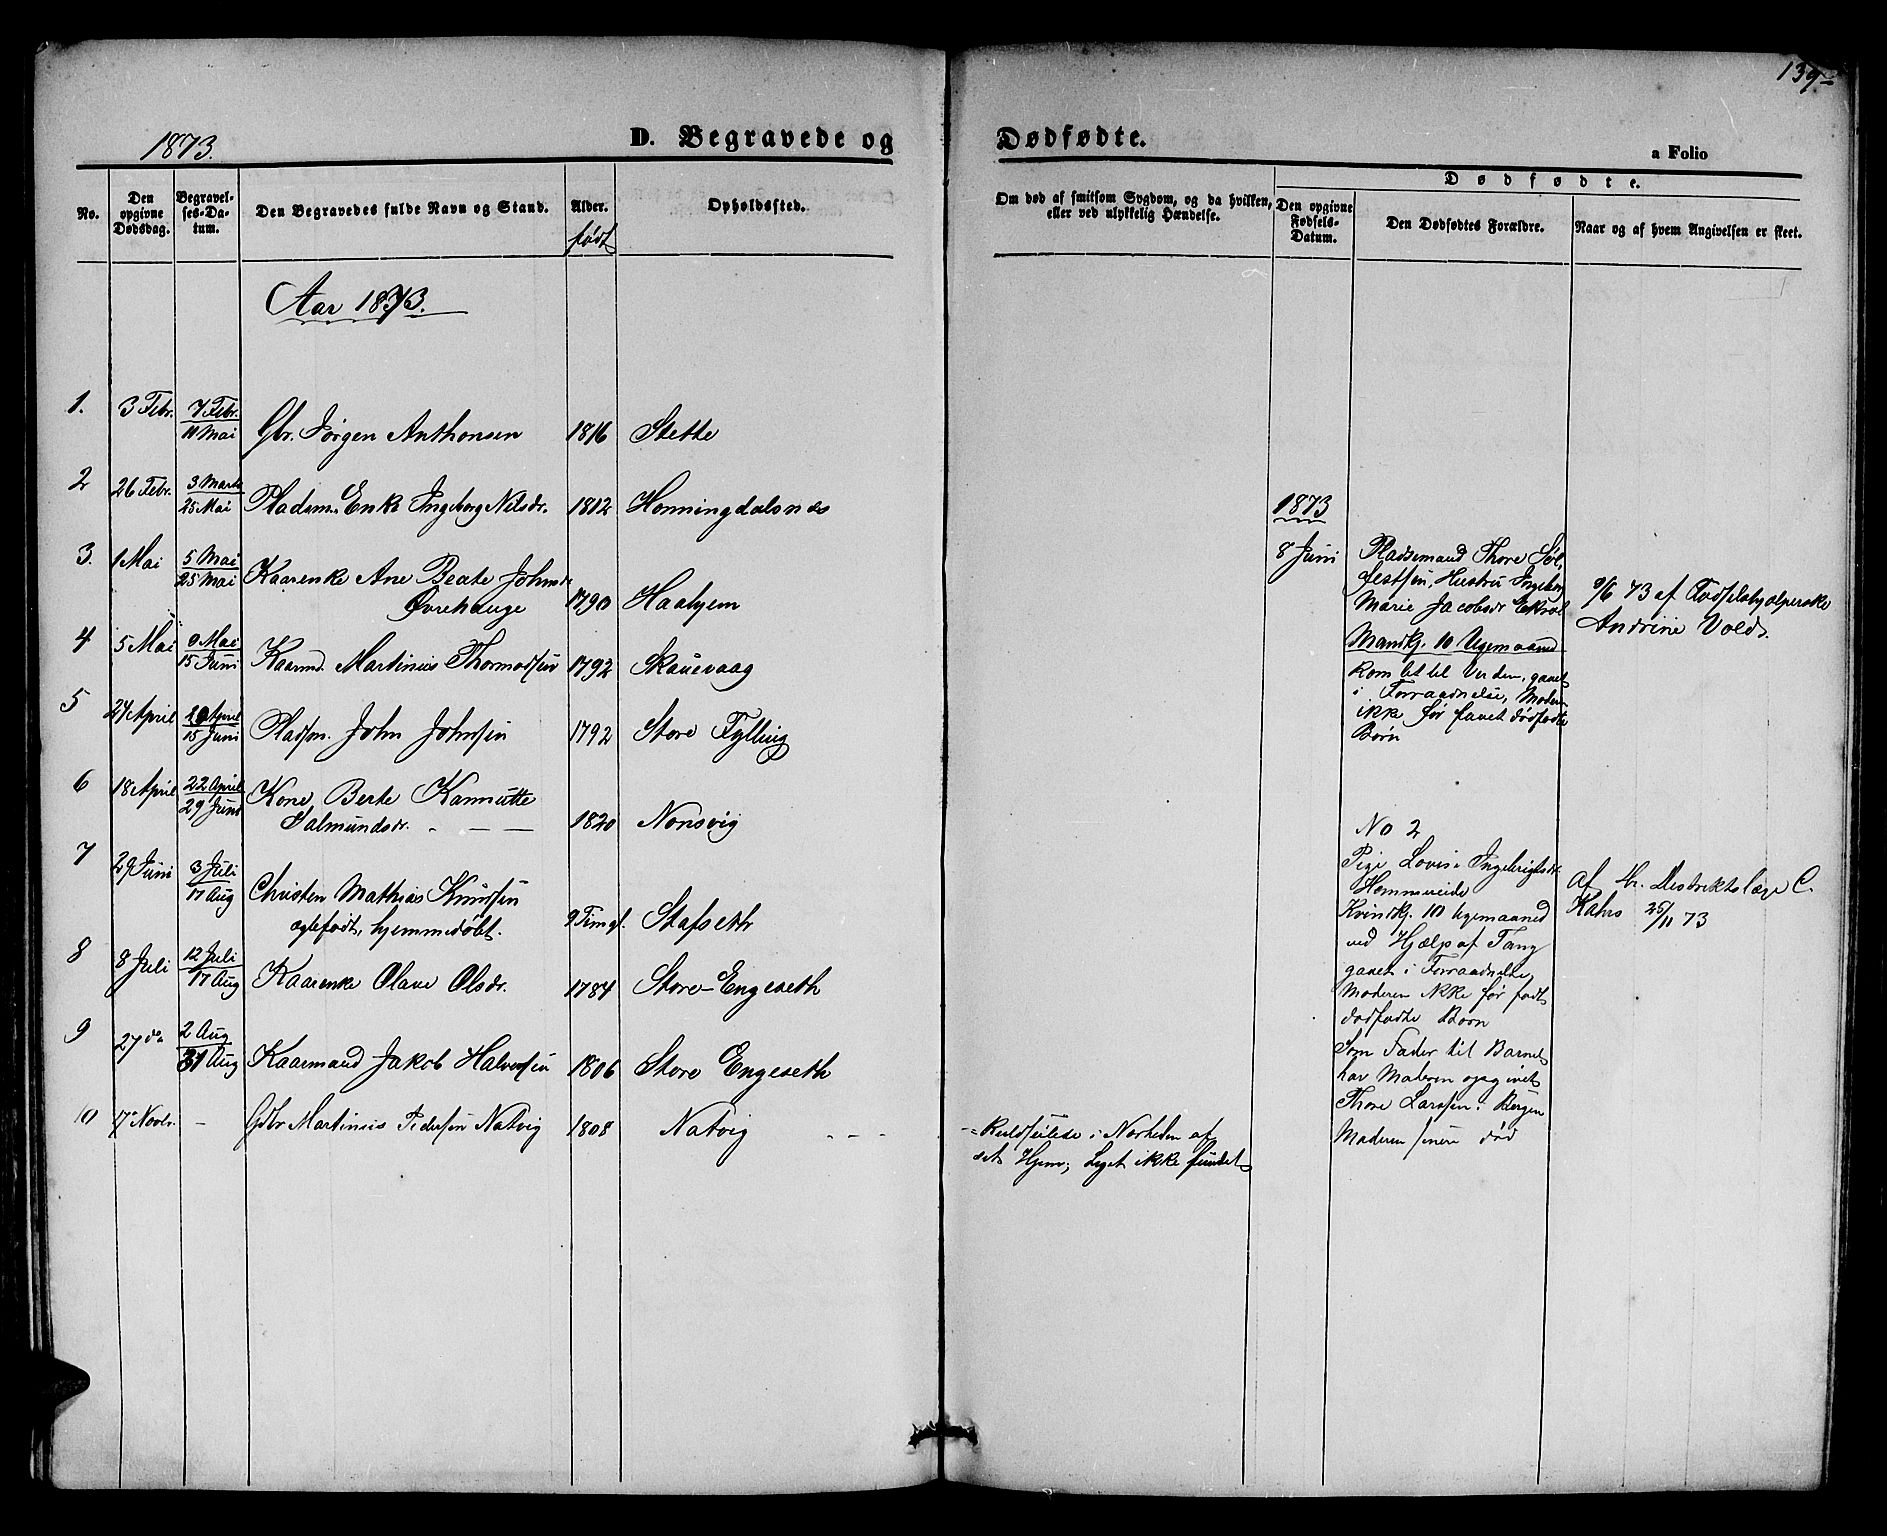 139
1873.
D. Begravede og
Dødfødte.
a Folio
No.
Den opgivne Dødsdag.
Begravelses-Datum.
Den Begravedes fulde Navn og Stand.
Alder.
født
Opholdssted.
Om død af smitsom Sygdom, og da hvilken,
eller ved ulykkelig Hændelse.
Dødfødte.
Den opgivne Fødsels-Datum.
Den Dødfødtes Forældre.
Naar og af hvem Angivelsen er skeet.
Aar 1873.
1. 3 Febr. 7 Febr. 11 Mai Gbr. Jørgen Anthonsen 1816 Stette
2 26 Febr. 3 Marts 25 Mai Pladsm. Enke Ingeborg Nilsdr. 1812 Honningdalsnæs
3. 1 Mai 5 Mai 25 Mai Kaarenke Ane Beate Johnsdr
Øvrehauge 1790 Haahjem
4 5 Mai 9 Mai 15 Juni Kaarmd. Martinus Thormodsen 1792 Skauevaag
5 24 April 29 April 15 Juni Pladsm. John Johnsen 1792 Store Fylling
6 18 April 22 April 29 Juni Kone, Berte Kanutte
Salmundsdr. 1820 Nonsvig
7 29 Juni 3 Juli 17 Aug Christen Mathias Knudsen
ægtefødt, hjemmedøbt. 9 Tim gl. Stafseth
8 8 Juli 12 Juli 17 Aug Kaarenke Olave Olsdr. 1784 Store-Engeseth
9 27 do 2 Aug 31 Aug Kaarmand Jakob Halvorsen 1806 Store Engeseth
10 17 Novbr. - Gdbr Martinus Pedersen Natvig 1808 Natvig - - -
Kuldseilese i Nærheden af
set Hjem; Liget ikke fundet
1873
8 Juni
Pladsemand Thore Søl-
festsen, Hustru Ingeborg
Marie Jacobsdr Ekrol
Mandkj. 10 Ugemaaned
kom let til Verden, gaaet
i Forraadnelse, Moderen
ikke før havet dødfødte
Børn
9/6 73 af Fødselshjælperske
Andrine Vold.
No 2
Pige Lovise Ingebrigtsdr.
Hommeneide
Kvindkj. 10 Ugemaaned
ved Hjælp af Tang
gaaet i Forraadnelse,
Moderen ikke før født
dødfødte Børn
Som Fader til Barnet
har Moderen opgivet
Thore Larssen i Bergen
Moderen senere død
af Hr. Distriktslæge C.
Kahrs 25/11 73